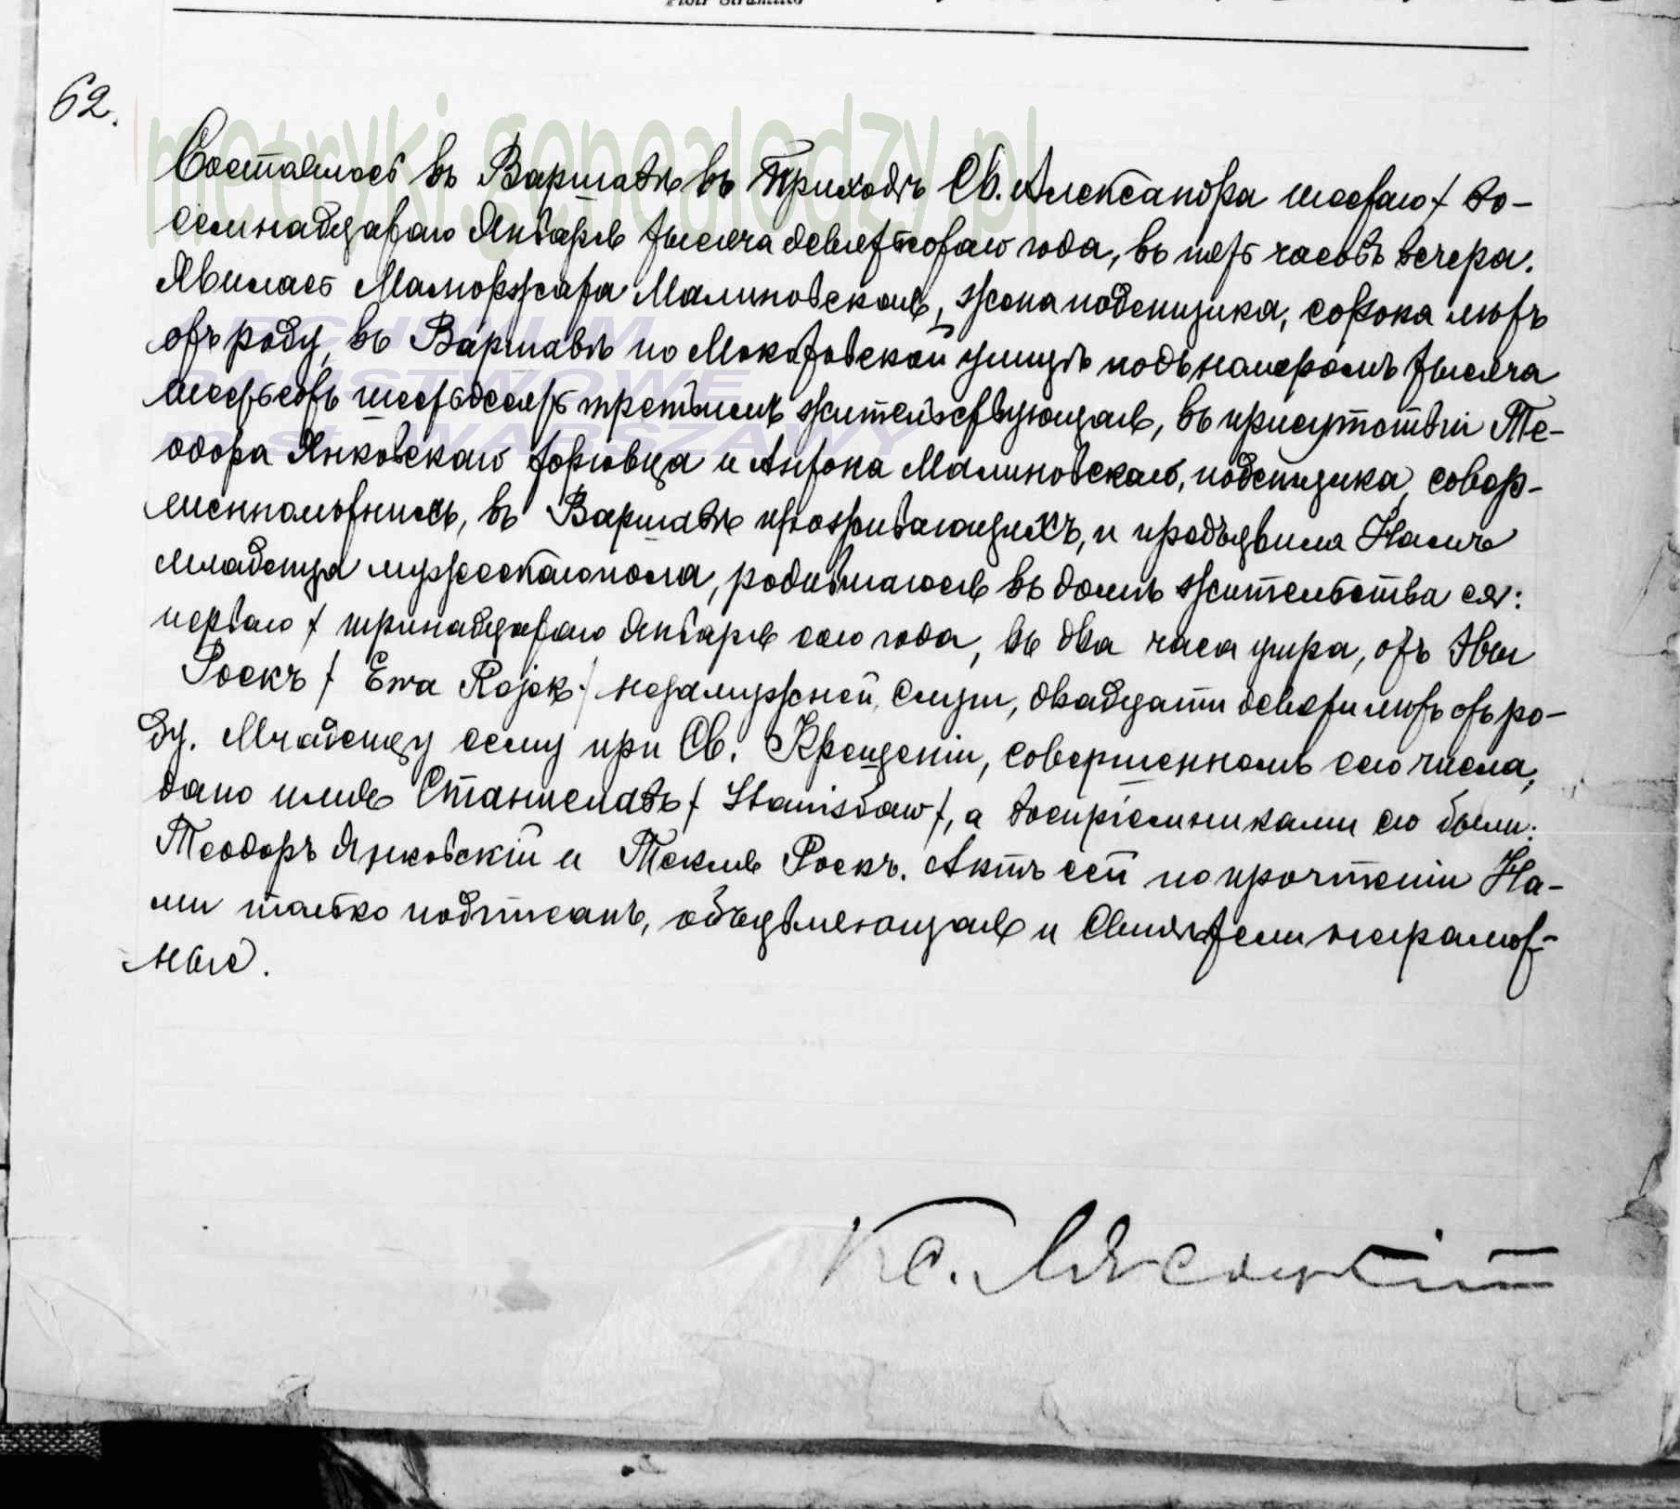 62.
Состоялось въ Варшавѣ въ Приходѣ Св. Александра шестаго / во-
семнадцатаго Января тысяча девятсотаго года, въ пять часовъ вечера.
Явилась Малиновская, жена поденщика, сорока лѣтъ
отъ роду, въ Варшавѣ по Мокотовской улицѣ подъ номеромъ тысяча
шестьсотъ шестьдесятъ третьимъ жительствующая, въ присутствіи Те-
одора Янковскаго торговца и Антона Малиновскаго, поденщика, совер-
шеннолѣтнихъ, въ Варшавѣ проживающихъ, и предъявила Намъ
младенца мужескаго пола, родившагося въ домѣ жительства ея:
перваго / тринадцатаго Января сего года, въ два часа утра, отъ Евы
Роекъ / Ewa Rojek / незамужней, слуги, двадцати девяти лѣтъ отъ ро-
ду. Младенцу сему при Св. Крещеніи, совершенномъ сего числа,
дано имя Станиславъ / Stanisław /, а воспріемниками его были:
Теодоръ Янковскій и Текля Роекъ. Актъ сей по прочтеніи На-
ми только подписанъ, объявляющая и Свидѣтели неграмот-
ные.
Кс.
metryki.genealodzy.pl
PAŃSTWOWE
m.st. WARSZAWY